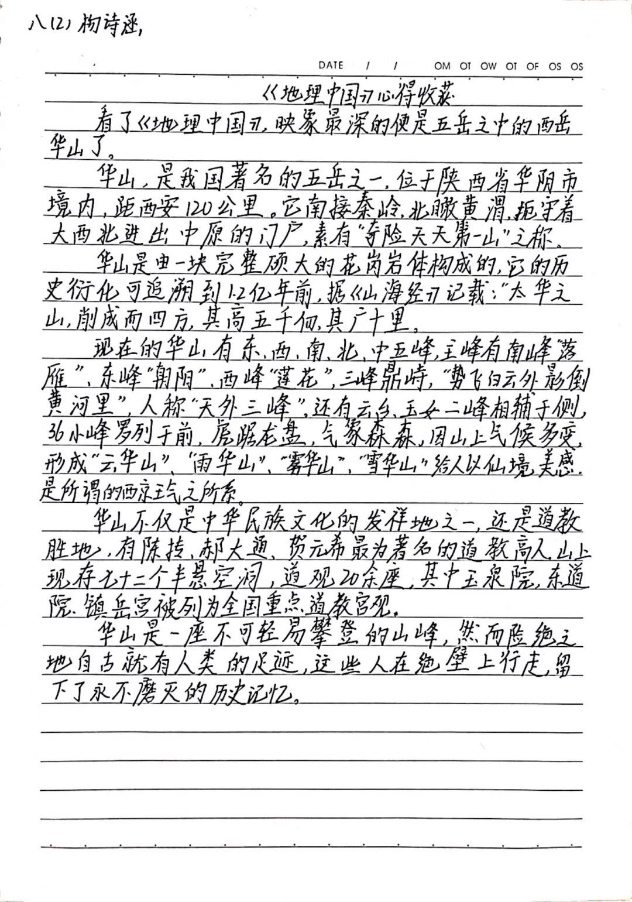 八(2) 杨诗涵
DATE / / OM OT OW OT OF OS OS
《地理中国》心得收获
看了《地理中国》,映象最深的便是五岳之中的西岳
华山了。
华山,是我国著名的五岳之一,位于陕西省华阴市
境内,距西安120公里。它南接秦岭,北瞰黄渭,扼守着
大西北进出中原的门户,素有“奇险天天第一山”之称。
华山是由一块完整硕大的花岗岩体构成的,它的历
史衍化可追溯到1.2亿年前,据《山海经》记载:“太华之
山,削成而四方,其高五千仞,其广十里。
现在的华山有东、西、南、北、中五峰,主峰有南峰“落
雁”、东峰“朝阳”、西峰“莲花”,三峰鼎峙,“势飞白云外,影倒
黄河里”,人称“天外三峰”。还有云台、玉女二峰相辅于侧,
36小峰罗列于前,虎踞龙盘,气象森森,因山上气候多变,
形成“云华山”、“雨华山”、“雾华山”、“雪华山”给人以仙境美感.
是所谓的西京王气之所系。
华山不仅是中华民族文化的发祥地之一,还是道教
胜地,有陈抟、郝大通、贺元希最为著名的道教高人,山上
现存七十二个半悬空洞,道观20余座,其中玉泉院,东道
院、镇岳宫被列为全国重点道教宫观。
华山是一座不可轻易攀登的山峰,然而险绝之
地自古就有人类的足迹,这些人在绝壁上行走,留
下了永不磨灭的历史记忆。